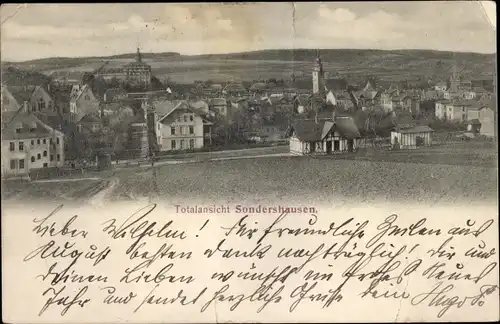 Totalansicht Sondershausen.
Lieber Wilhelm! Für freundliche Zeilen aus
August besten Dank nachträglich! Dir und
Deinen Lieben wünscht ein frohes Neues
Jahr und sendet herzliche Grüsse dem Hugo